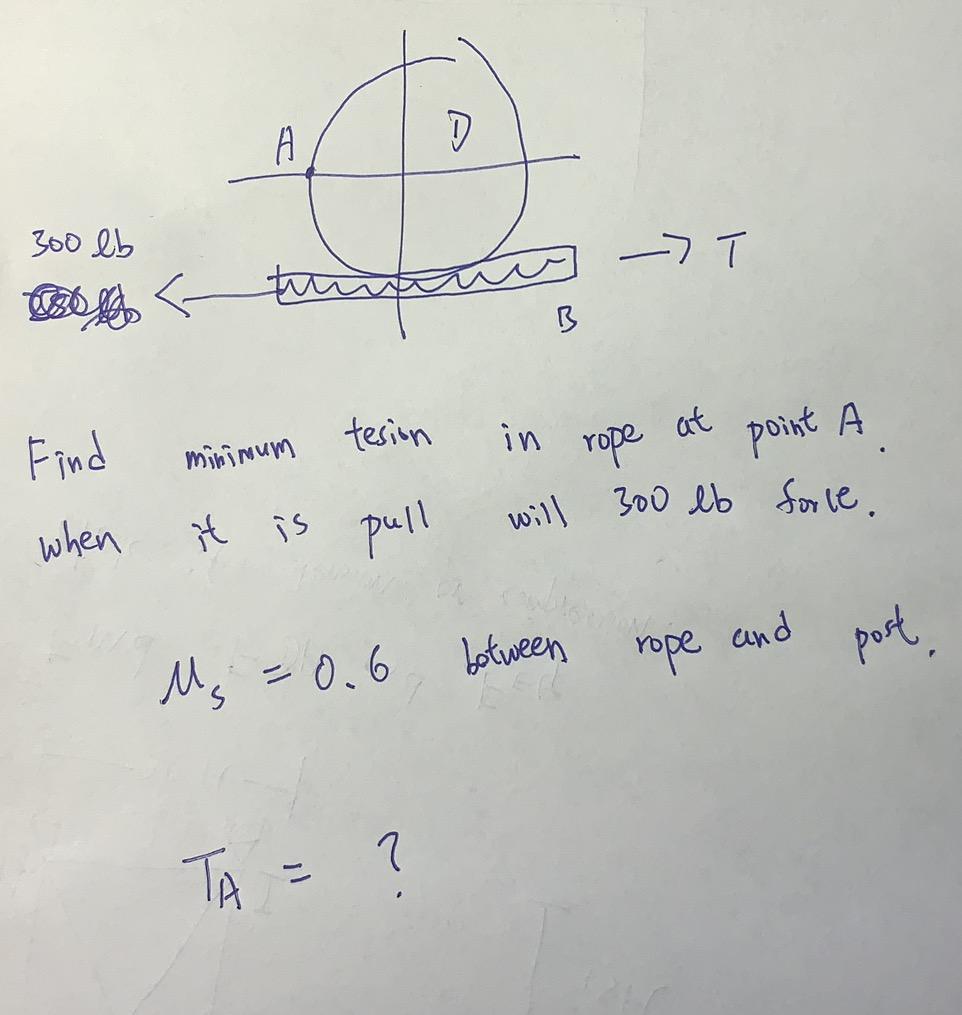 A
D
300 lb
T
B
Find minimum tesion in rope at point A.
when it is pull will 300 lb force.
Ms = 0.6 between rope and post.
TA = ?